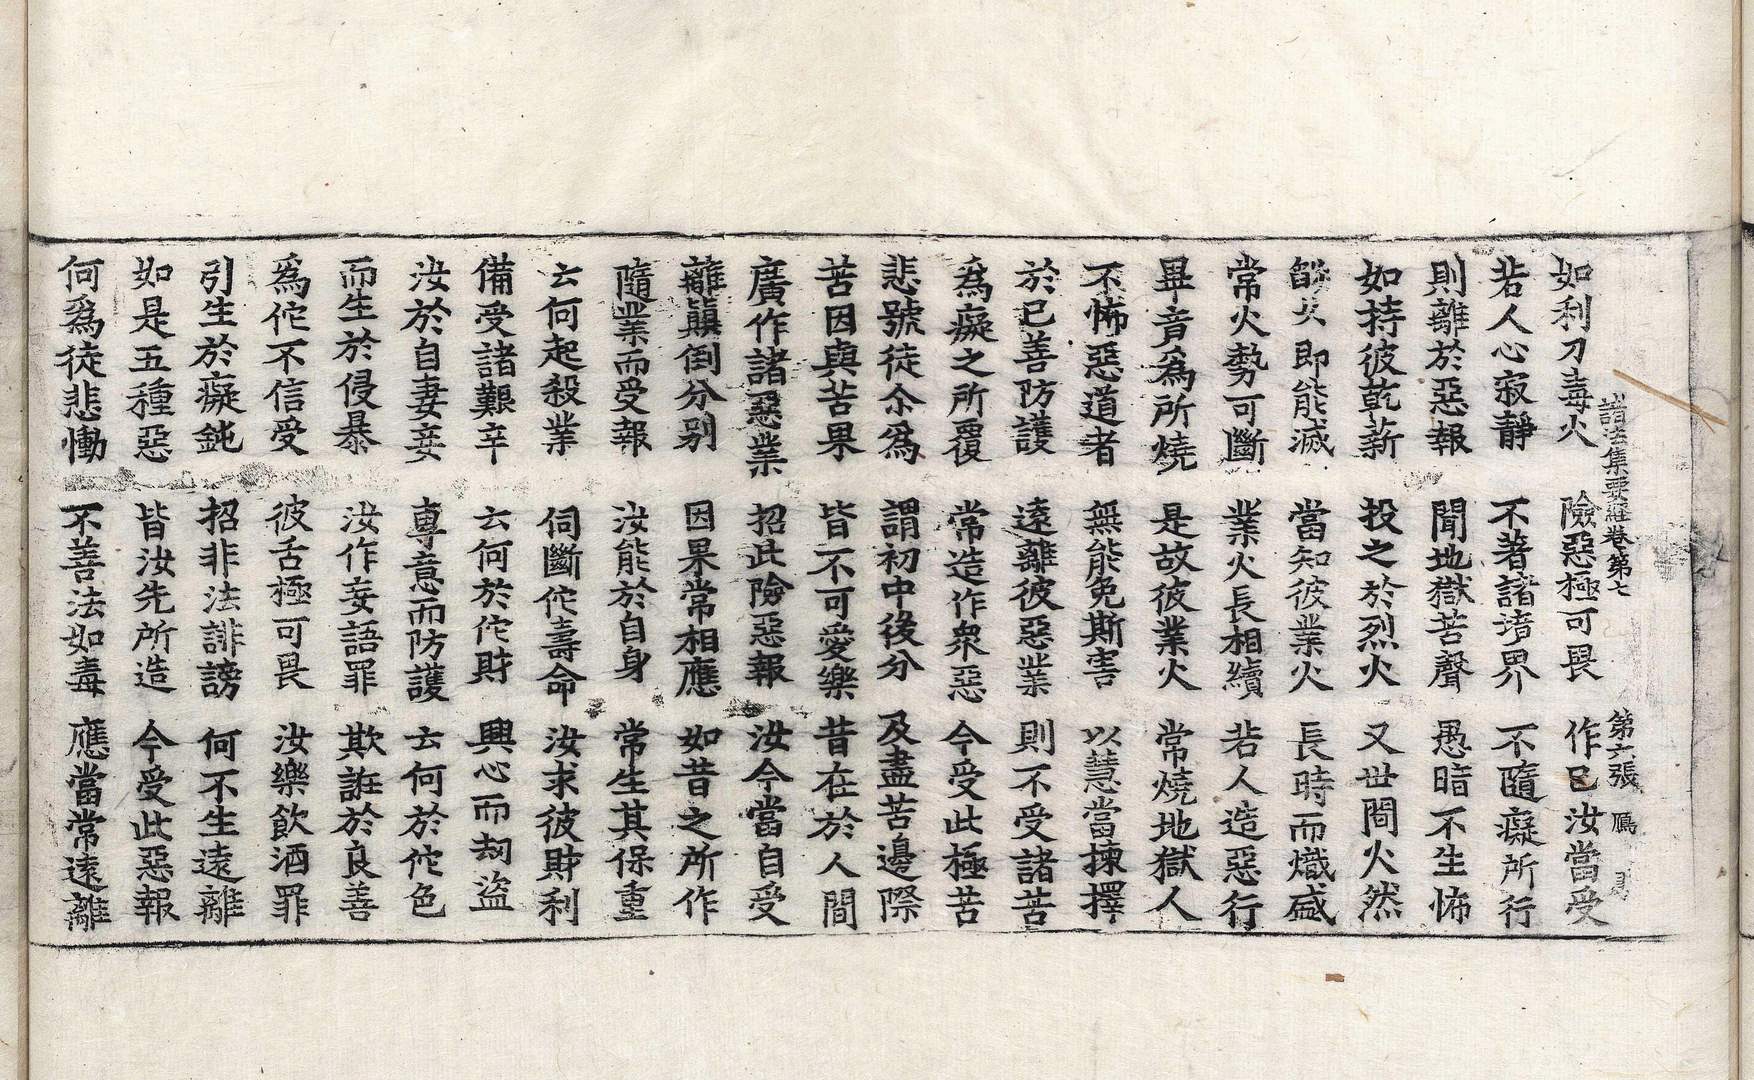 諸法集要經卷第七 第六張 鴈
如利刀毒火 險惡極可畏 作已汝當受
若人心寂靜 不著諸境界 不隨癡所行
則離於惡報 聞地獄苦聲 愚暗不生怖
如持彼乾薪 投之於烈火 又世間火然
燄火即能滅 當知彼業火 長時而熾盛
常火勢可斷 業火長相續 若人造惡行
畢竟為所燒 是故彼業火 常燒地獄人
不怖惡道者 無能免斯害 以慧當揀擇
於已善防護 遠離彼惡業 則不受諸苦
為癡之所覆 常造作衆惡 今受此極苦
悲號徒尒為 謂初中後分 及盡苦邊際
苦因與苦果 皆不可愛樂 昔在於人間
廣作諸惡業 招此險惡報 汝今當自受
離顛倒分別 因果常相應 如昔之所作
隨業而受報 汝能於自身 常生其保重
云何起殺業 伺斷佗壽命 汝求彼財利
備受諸艱辛 云何於佗財 興心而刼盜
汝於自妻妾 專意而防護 云何於佗色
而生於侵暴 汝作妄語罪 欺誑於良善
為佗不信受 彼舌極可畏 汝樂飲酒罪
引生於癡鈍 招非法誹謗 何不生遠離
如是五種惡 皆汝先所造 今受此惡報
何為徒悲慟 不善法如毒 應當常遠離